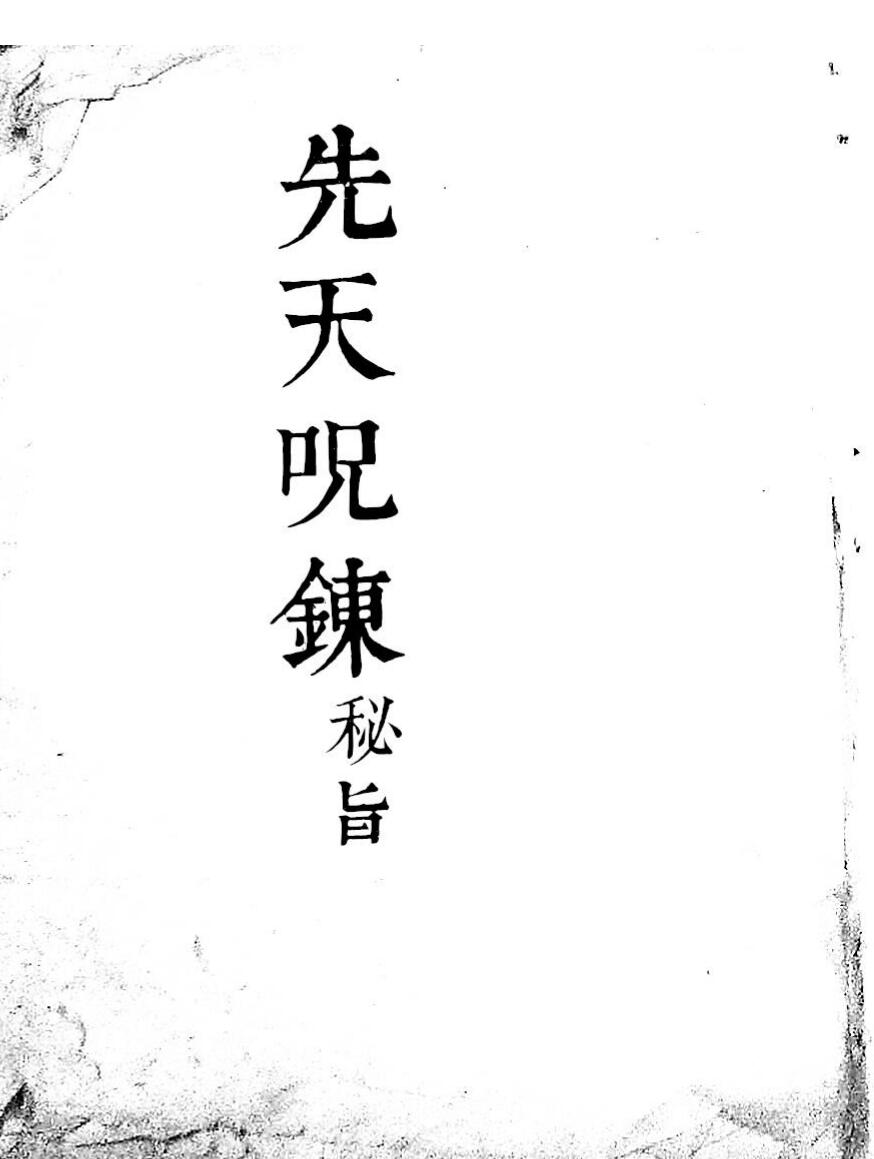 先天呪鍊秘旨